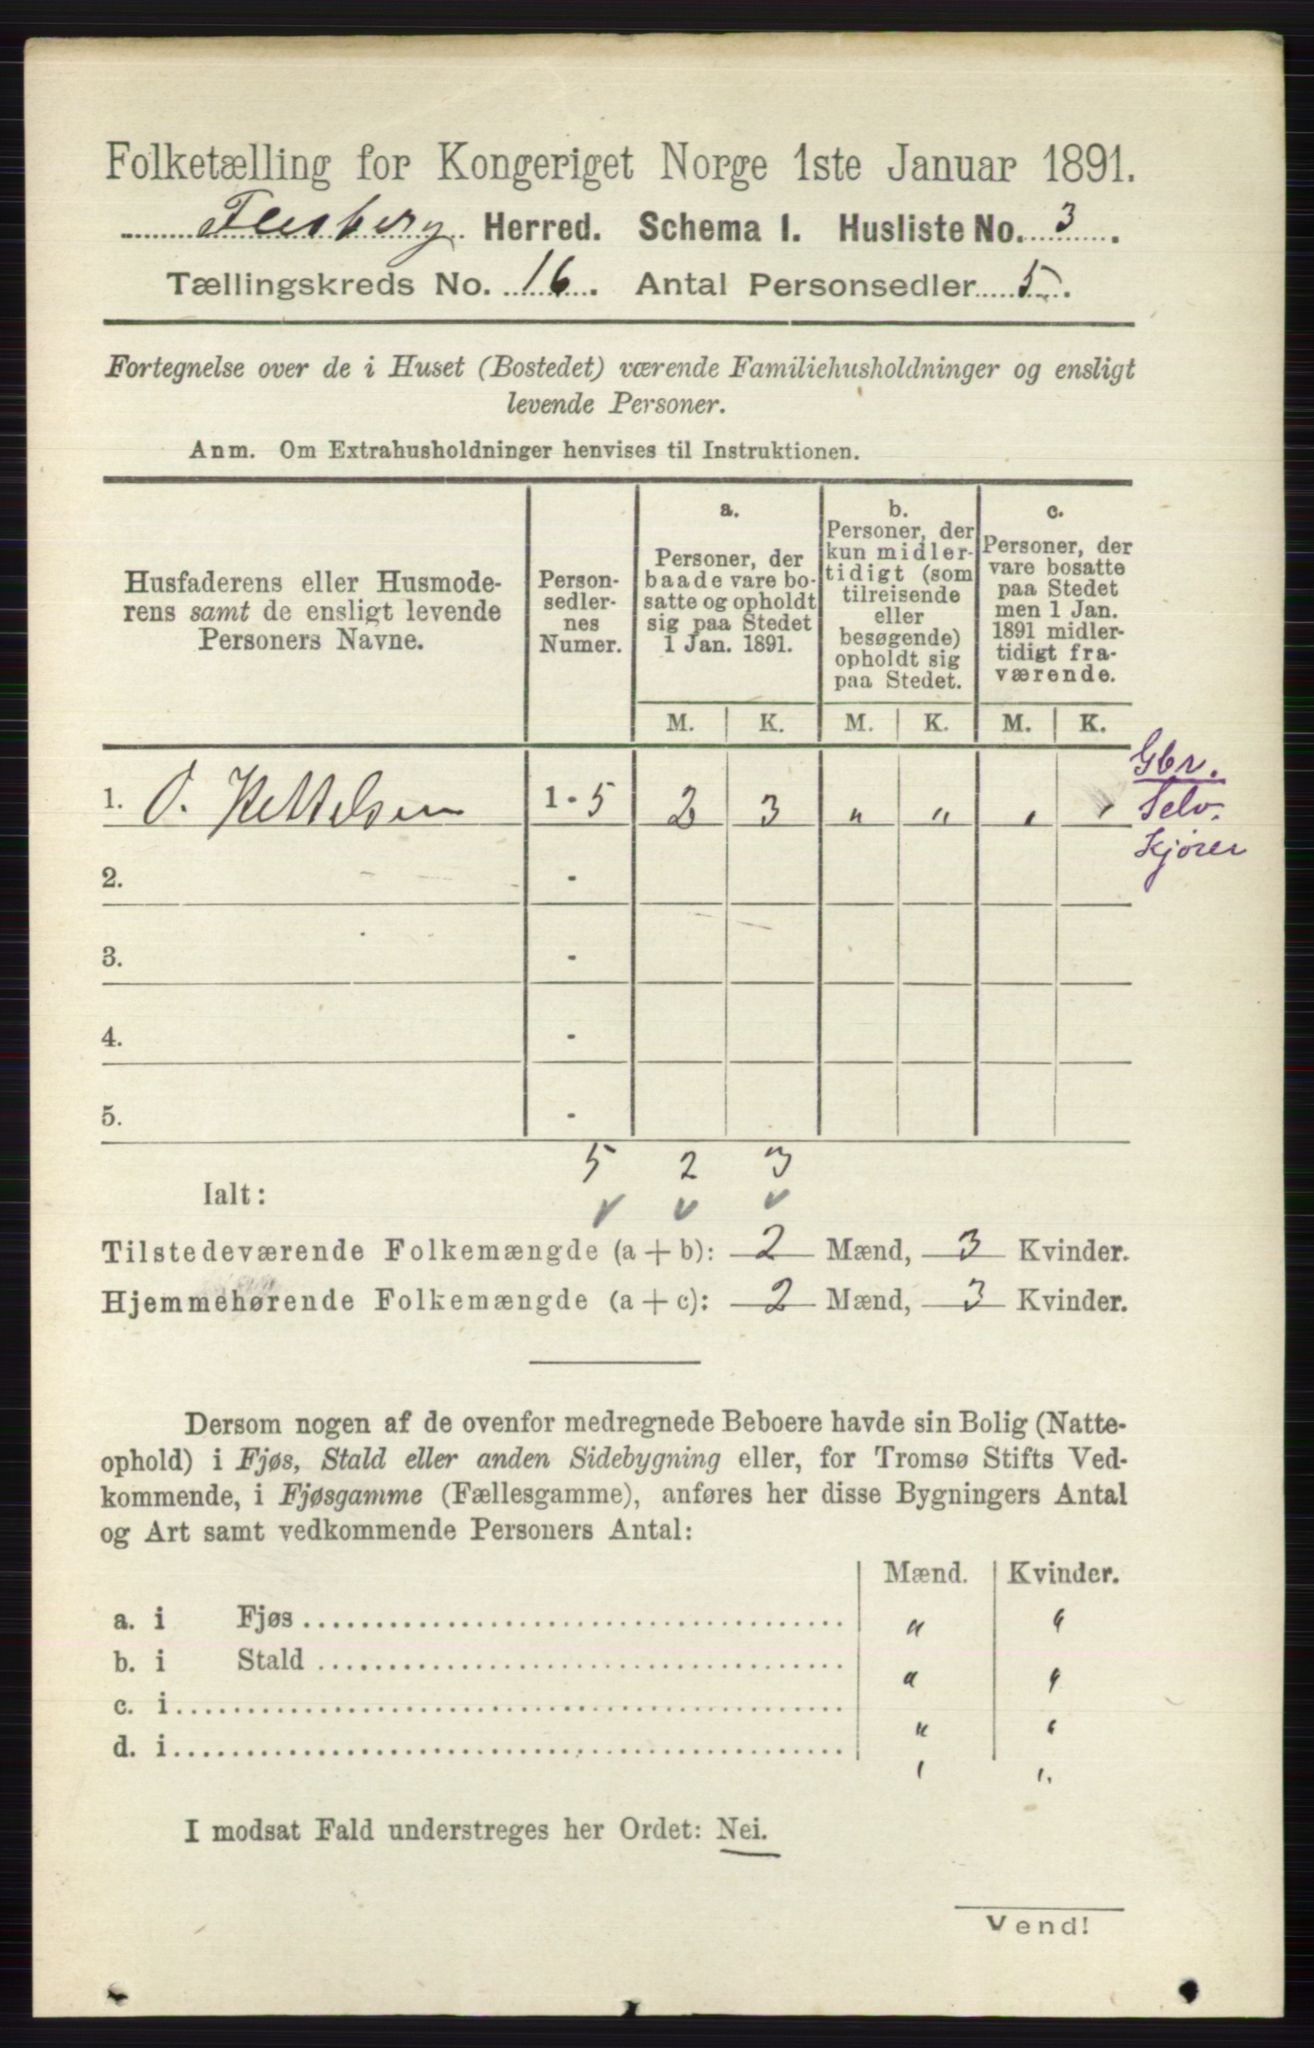 Folketælling for Kongeriget Norge 1ste Januar 1891.
Flesberg Herred. Schema I. Husliste No. 3.
Tællingskreds No. 16. Antal Personsedler 5.
Fortegnelse over de i Huset (Bostedet) værende Familiehusholdninger og ensligt
levende Personer.
Anm. Om Extrahusholdninger henvises til Instruktionen.
Husfaderens eller Husmode-
rens samt de ensligt levende
Personers Navne.
Person-
sedler-
nes
Numer.
a.
Personer, der
baade vare bo-
satte og opholdt
sig paa Stedet
1 Jan. 1891.
b.
Personer, der
kun midler-
tidigt (som
tilreisende
eller
besøgende)
opholdt sig
paa Stedet.
c.
Personer, der
vare bosatte
paa Stedet
men 1 Jan.
1891 midler-
tidigt fra-
værende.
M. K. M. K. M. K.
1. O. Kettelsen 1 - 5 2 3 „ „ „ „
Gbr.
Selv.
Kjører
2. -
3. -
4. -
5. -
5 2 3
Ialt:
Tilstedeværende Folkemængde (a + b): 2 Mænd, 3 Kvinder.
Hjemmehørende Folkemængde (a + c): 2 Mænd, 3 Kvinder.
Dersom nogen af de ovenfor medregnede Beboere havde sin Bolig (Natte-
ophold) i Fjøs, Stald eller anden Sidebygning eller, for Tromsø Stifts Ved-
kommende, i Fjøsgamme (Fællesgamme), anføres her disse Bygningers Antal
og Art samt vedkommende Personers Antal:
Mænd. Kvinder.
a. i Fjøs „ „
b. i Stald „ „
c. i „ „
d. i „ „
I modsat Fald understreges her Ordet: Nei.
Vend!